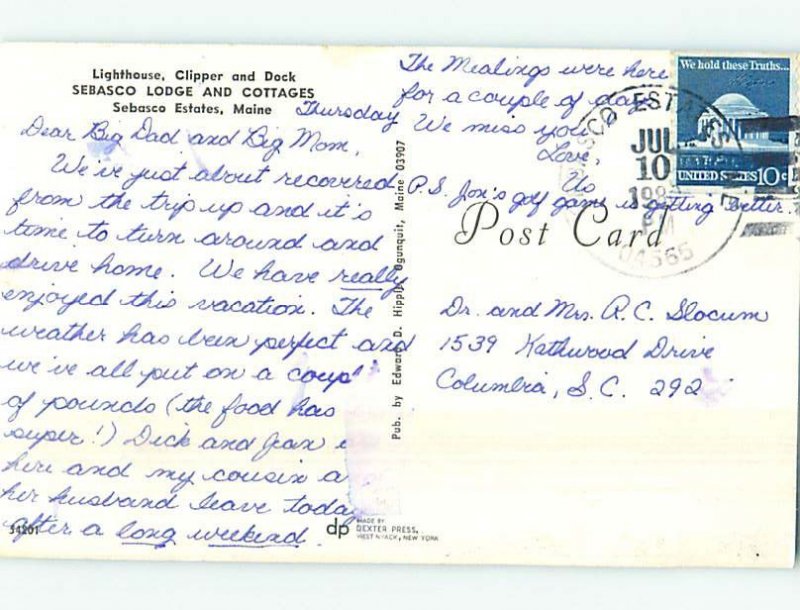 Lighthouse, Clipper and Dock
SEBASCO LODGE AND COTTAGES
Sebasco Estates, Maine
Thursday
Dear Big Dad and Big Mom,
We've just about recovered
from the trip up and it's
time to turn around and
drive home. We have really
enjoyed this vacation. The
weather has been perfect and
we've all put on a coupl
of pounds (the food has
super!) Dick and Jean
here and my cousin a
her husband leave today
after a long weekend.
34201
dp MADE BY
DEXTER PRESS,
WEST NYACK, NEW YORK
Pub. by Edward D. Hipple, Ogunquit, Maine 03907
The Mealings were here
for a couple of days.
We miss you
Love,
Us
P.S. Jon's golf game is getting better.
Post Card
We hold these Truths...
UNITED STATES 10c
SCO ESTATES
JUL
10
PM
04565
Dr. and Mrs. R.C. Slocum
1539 Kathwood Drive
Columbia, S.C. 292